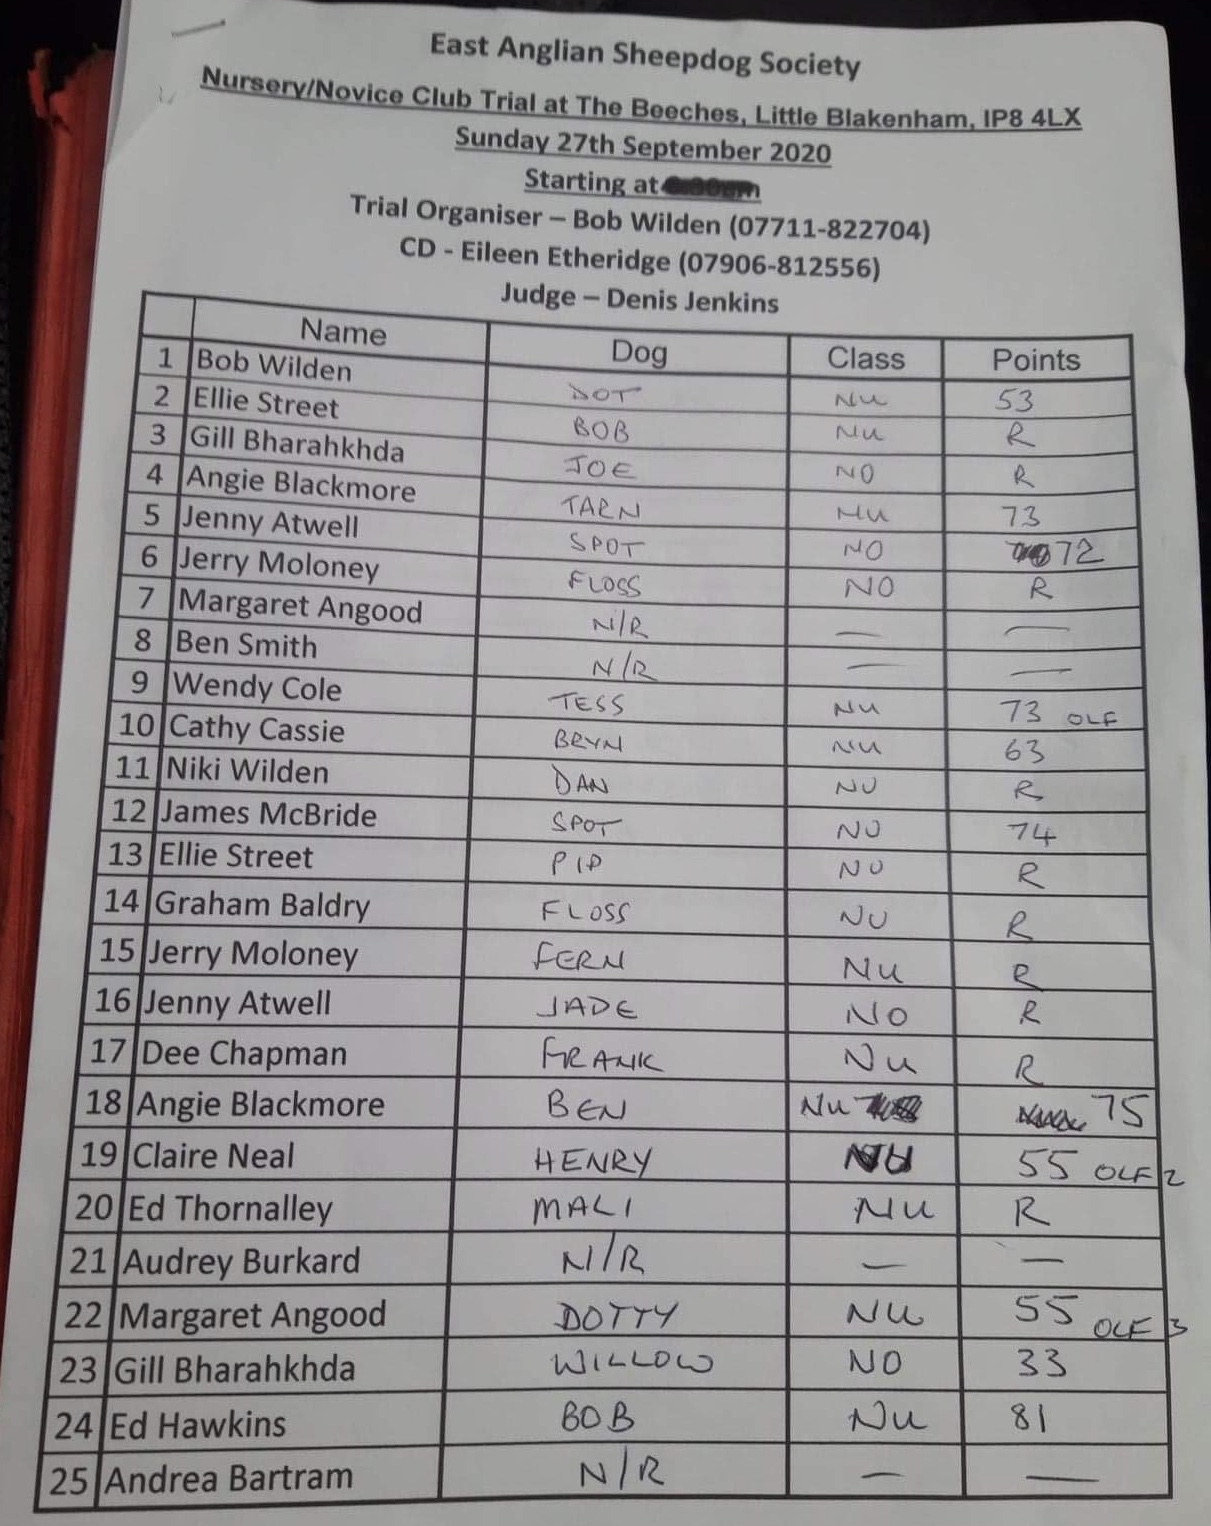 East Anglian Sheepdog Society
Nursery/Novice Club Trial at The Beeches, Little Blakenham, IP8 4LX
Sunday 27th September 2020
Starting at
Trial Organiser – Bob Wilden (07711-822704)
CD - Eileen Etheridge (07906-812556)
Judge – Denis Jenkins
Name Dog Class Points
1 Bob Wilden DOT NU 53
2 Ellie Street BOB NU R
3 Gill Bharahkhda JOE NO R
4 Angie Blackmore TARN NU 73
5 Jenny Atwell SPOT NO 72
6 Jerry Moloney FLOSS NO R
7 Margaret Angood N/R — —
8 Ben Smith N/R — —
9 Wendy Cole TESS NU 73 OLF
10 Cathy Cassie BRYN NU 63
11 Niki Wilden DAN NU R
12 James McBride SPOT NO 74
13 Ellie Street PIP NU R
14 Graham Baldry FLOSS NU R
15 Jerry Moloney FERN NU R
16 Jenny Atwell JADE NO R
17 Dee Chapman FRANK NU R
18 Angie Blackmore BEN NU 75
19 Claire Neal HENRY NU 55 OLF 2
20 Ed Thornalley MALI NU R
21 Audrey Burkard N/R — —
22 Margaret Angood DOTTY NU 55 OLF 3
23 Gill Bharahkhda WILLOW NO 33
24 Ed Hawkins BOB NU 81
25 Andrea Bartram N/R — —